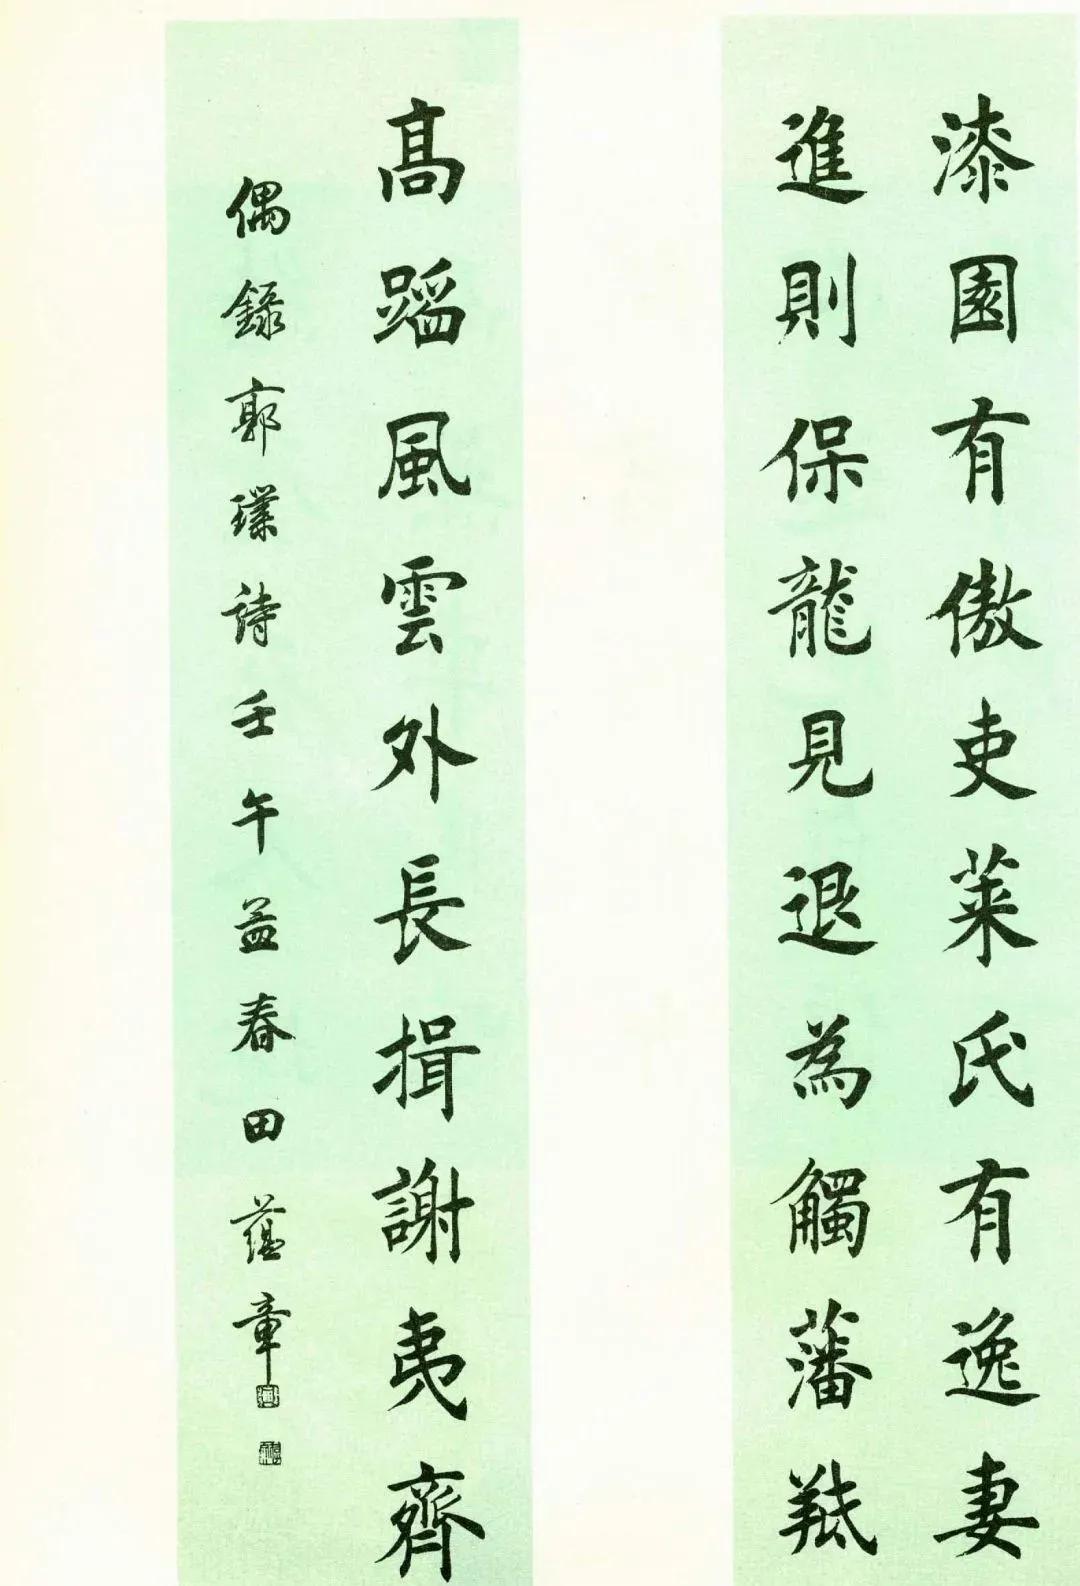 漆園有傲吏萊氏有逸妻
進則保龍見退為觸藩羝
高蹈風雲外長揖謝夷齊
偶錄郭璞詩壬午孟春田蘊章